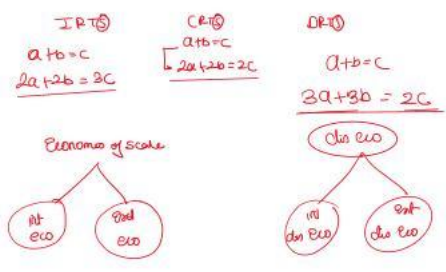 IRTⓈ
a+b=c
2a+2b = 3c
CRTⓈ
a+b=c
2a+2b=2c
DRTⓈ
a+b=c
3a+3b = 2c
Economies of scale
int
eco
Ext
eco
dis eco
int
dis eco
Ext
dis eco